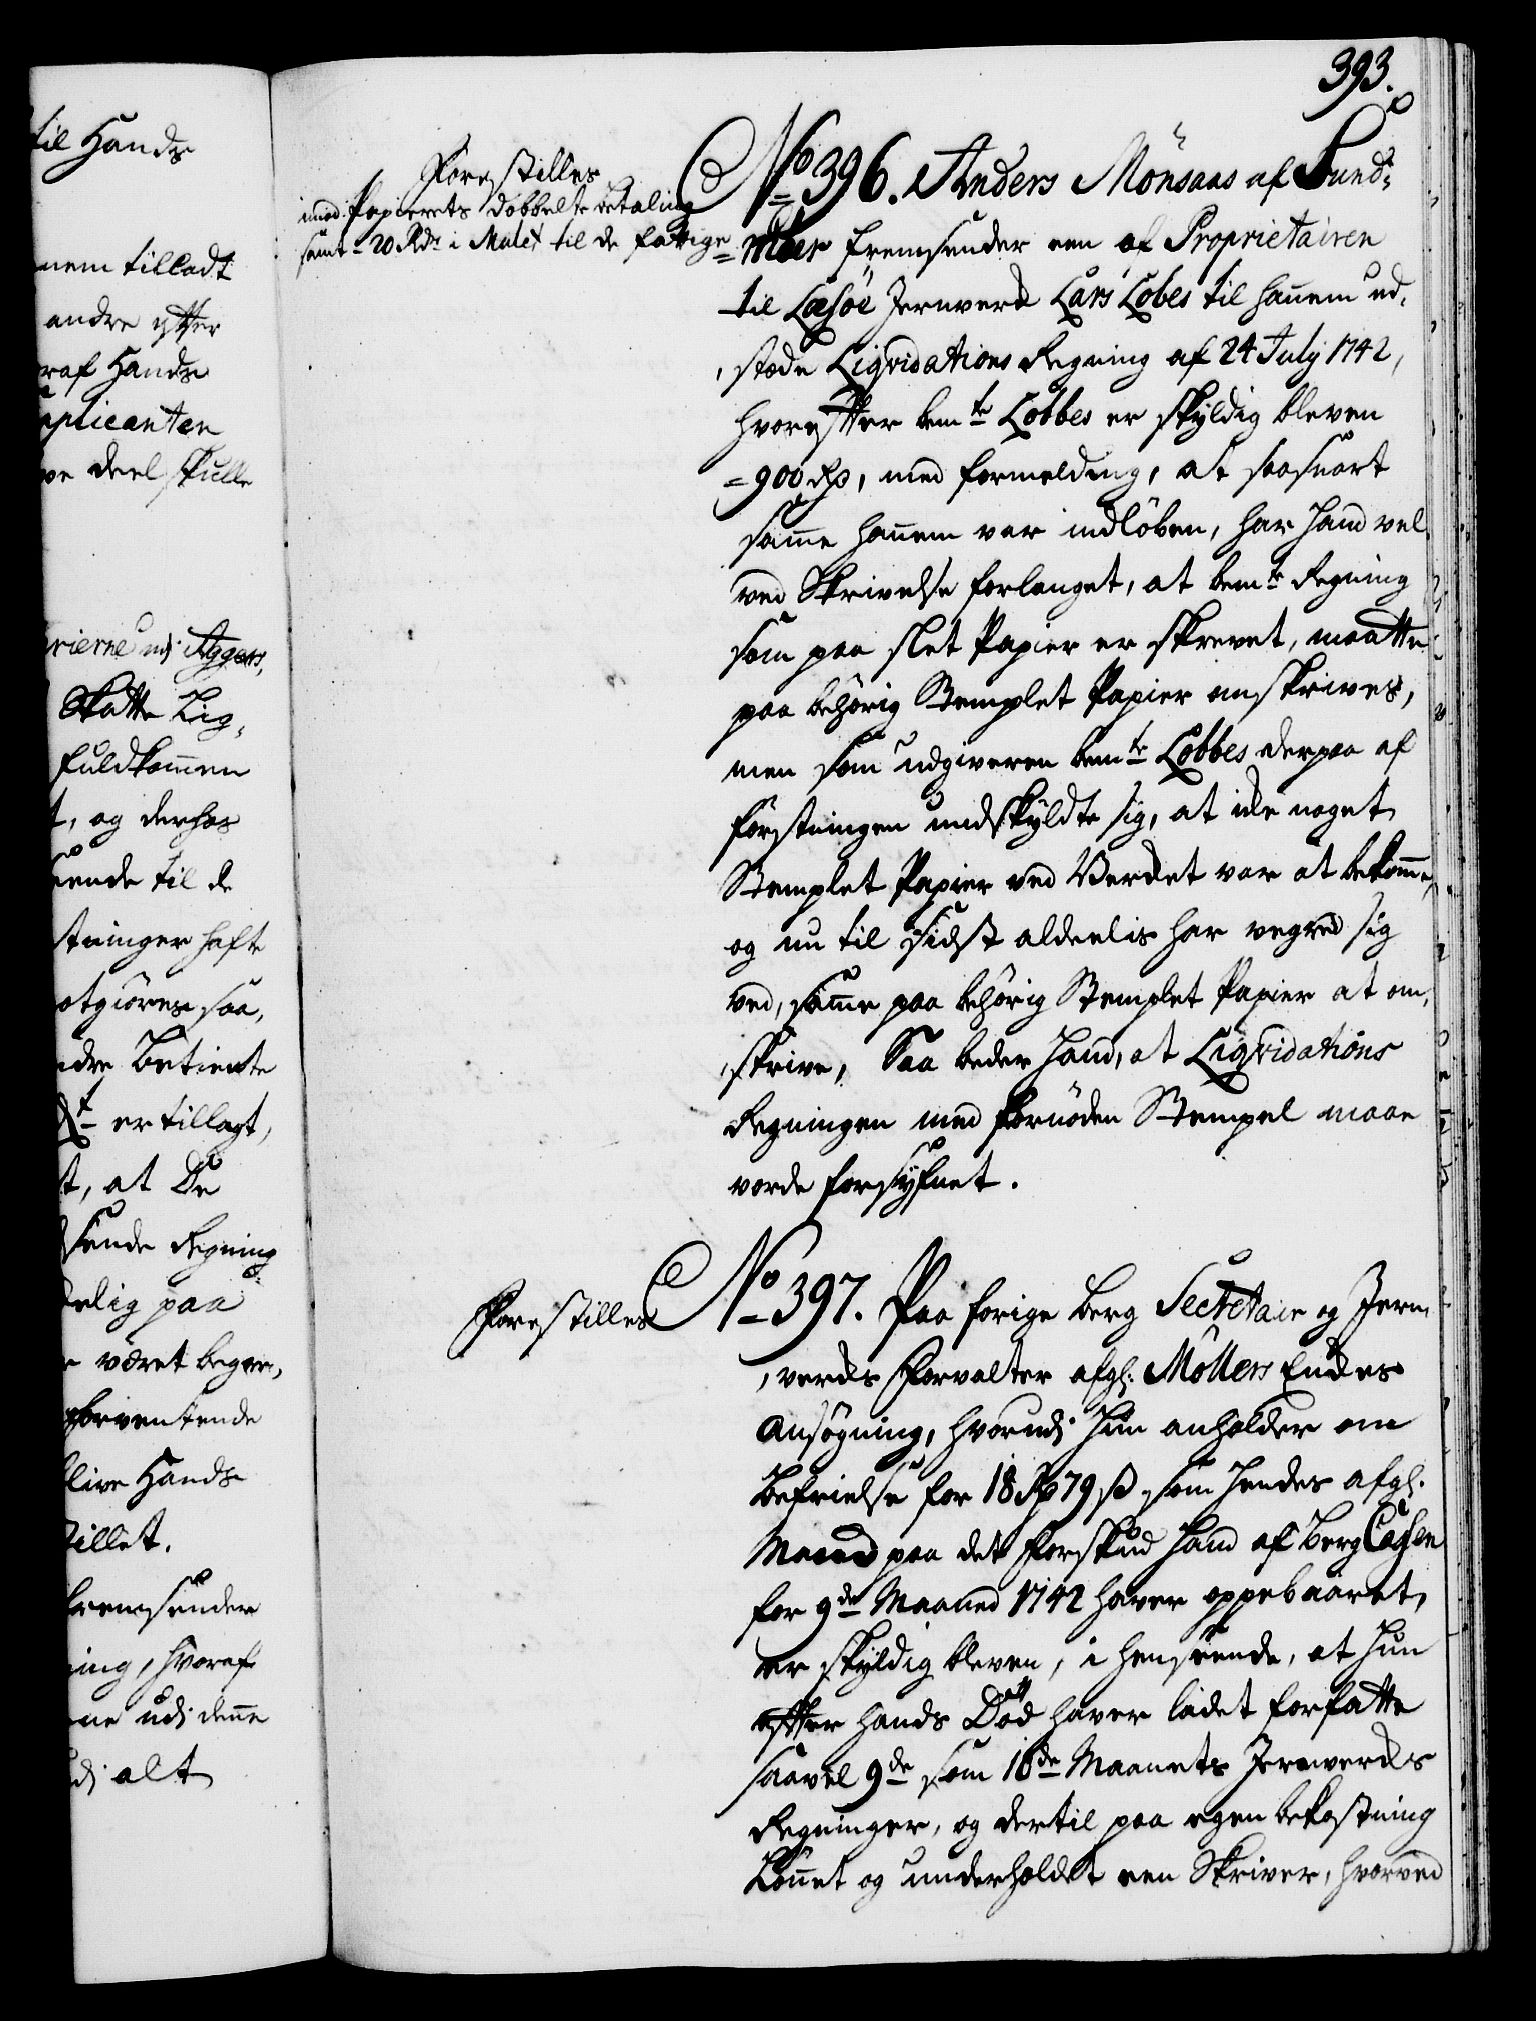 393.
til Hands
nem tilladt
andre ytter
raf Hands
plicanten
ve deel skulle
rierne udj Agger,
Skatte Lig,
fuldkommen
t, og derhos
ende til de
stninger hafte
otgiøres saa,
ndre Betiente
er tillagt,
t, at De
sende Regning
elig paa
e været begær,
forventende
blive Hands
tillet.
fremsender
ning, hvoraf
ne udj denne
dj alt
Forestilles
med Papierets dobbelte betaling
samt 20 Rdr i Mulct til de fattige
No 396. Anders Mönsaas af Sund:
=Moer fremsender een af Proprietairen
til Lesöe Jernverk Lars Lobes til hannem ud,
,stæde Liqvidations Regning af 24 July 1742,
hvorefter bemte Lobbes er skyldig bleven
=900 Rd, med formelding, at saasnart
samme hannem var indlöben, har hand vel
ved Skrivelse forlanget, at bemte Regning
som paa slet Papier er skrevet, maatte
paa behörig Stemplet Papier omskrives,
men som udgiveren bemte Lobbes derpaa af
förstningen undskyldte sig, at icke noget
Stemplet Papier ved Verket var at bekomme,
og nu til sidst aldeelis har vegred sig
ved, samme paa behörig Stemplet Papier at om,
,skrive, Saa beder hand, at Liqvidations
Regningen med fornöden Stempel maae
vorde forsyfnet.
Forestilles
No 397. Paa forige Berg Secretair og Jern
,verks Forvalter afg: Möllers Enckes
Ansögning, hvorudj hun anholder om
befrielse for 18 Rd 79 s som hendes afg:
Mand paa det Forskud hand af Berg Cassen
for 9de Maaned 1742 haver oppebaaret,
er skyldig bleven, i henseende, at hun
efter hands Död haver ladet forfatte
saavel 9de som 10de Maanets Jernverks
Regninger, og dertil paa egen bekostning
Lönnet og underholdt een Skriver, hvorved